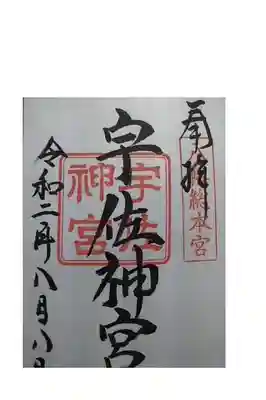 奉拝
総本宮
宇佐神宮
宇佐神宮
令和二年八月八日